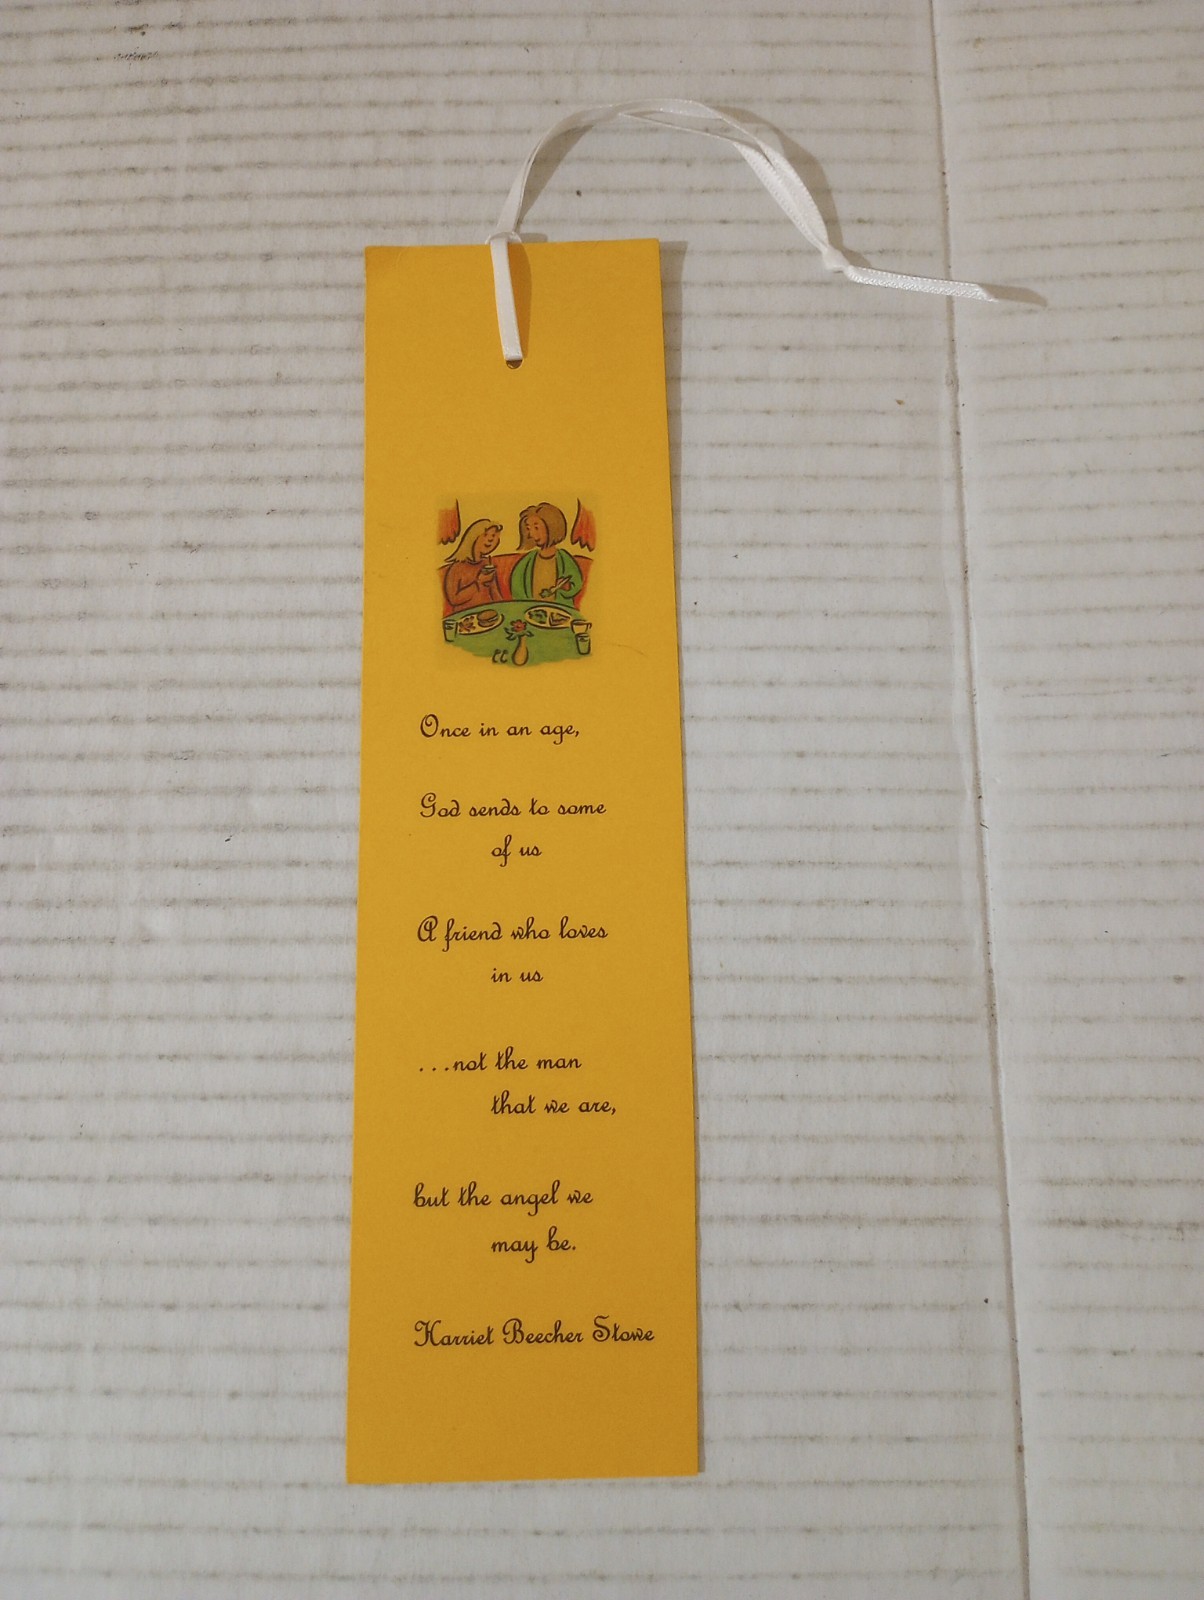 Once in an age,
God sends to some
of us
A friend who loves
in us
...not the man
that we are,
but the angel we
may be.
Harriet Beecher Stowe